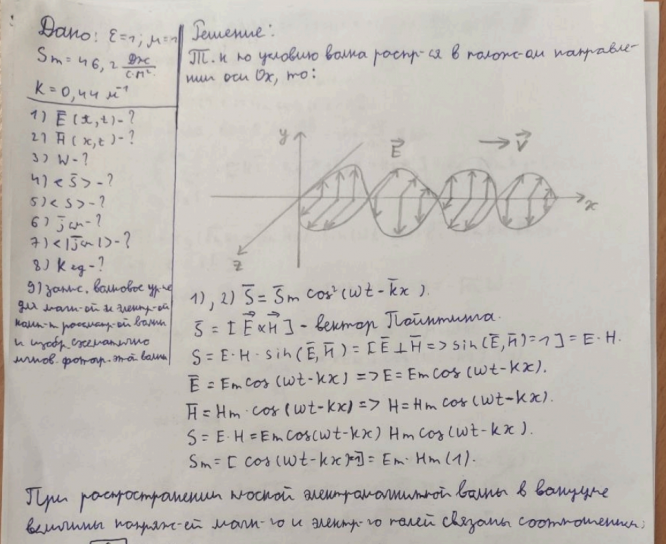 Дано: ε=1; μ=1
Sm = 46,2 Дж/с·м²
K = 0,44 м⁻¹
1) E̅(x,t)-?
2) H̅(x,t)-?
3) W-?
4) <S̅>-?
5) <S>-?
6) j̅см-?
7) <|j̅см|>-?
8) K ед-?
9) запис. волновое ур-е
для магн-ой и электр-ой
комп-т рассматр-ой волны
и изобр. схематично
мгнов. фотогр. этой волны
Решение:
Т.к по условию волна распр-ся в полож-ом направле-
нии оси Ox, то:
y
E⃗
V⃗
x
z
1), 2) S̅ = S̅m cos²(ωt - k̅x).
S̅ = [E⃗×H⃗] - вектор Пойнтинга.
S = E·H·sin(E̅,H̅) = [E̅⊥H̅ => sin(E̅,H̅)=1] = E·H.
E̅ = Em cos(ωt-kx) => E = Em cos(ωt-kx).
H̅ = Hm·cos(ωt-kx) => H = Hm cos(ωt-kx).
S = E·H = Em cos(ωt-kx) Hm cos(ωt-kx).
Sm = [cos(ωt-kx)=1] = Em·Hm (1).
При распространении плоской электромагнитной волны в вакууме
величины напряж-ей магн-го и электр-го полей связаны соотношением: